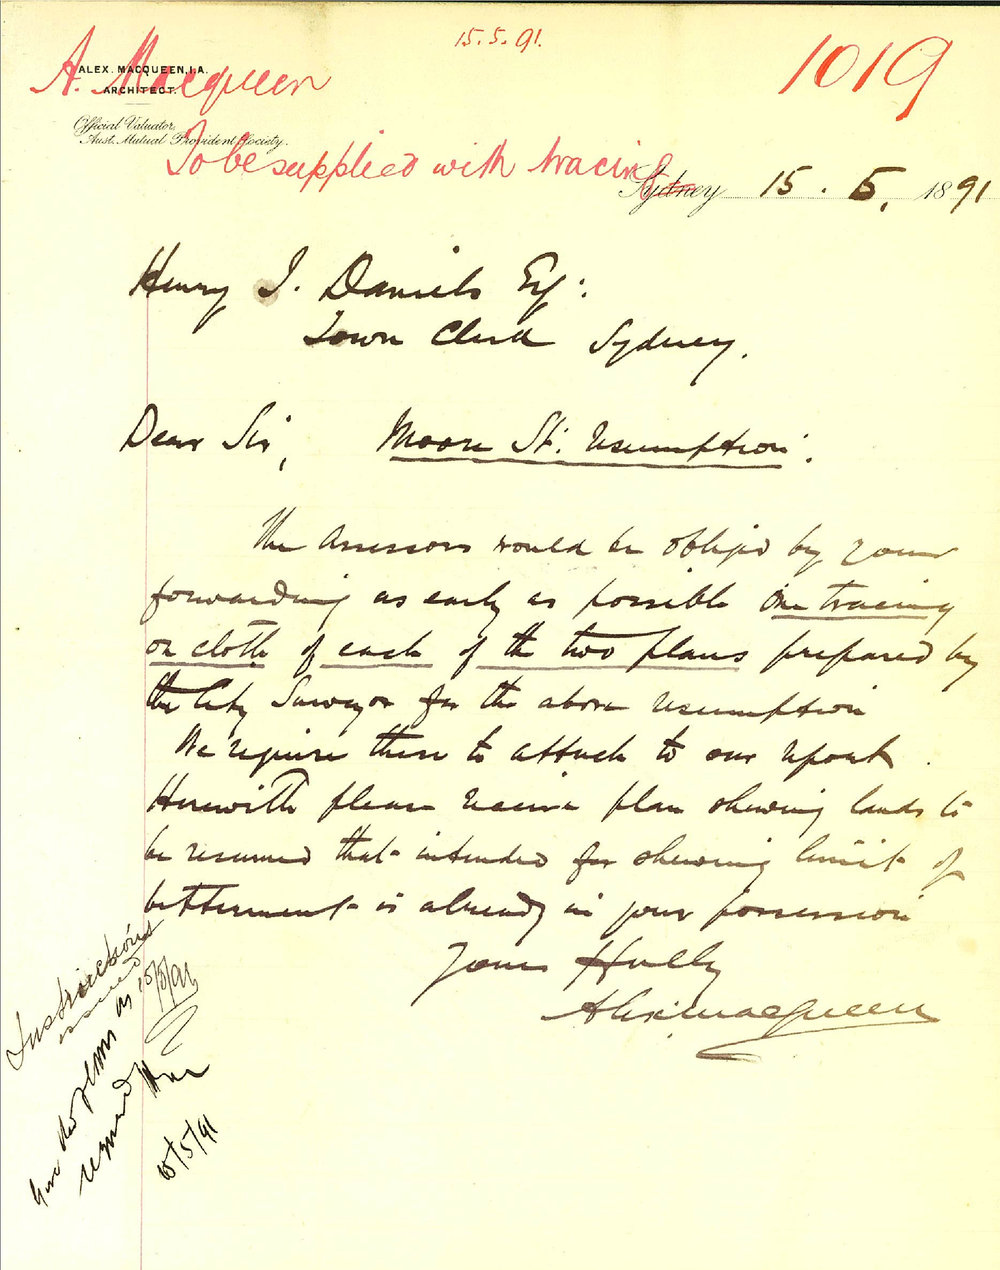 15.5.91.
1019
A. Macqueen
ALEX. MACQUEEN, I.A.
ARCHITECT.
Official Valuator,
Aust. Mutual Provident Society.
To be supplied with tracing
Sydney 15. 5. 1891
Henry J. Daniels Esq:
Town Clerk Sydney.
Dear Sir, Moore St: resumption.
The Assessors would be obliged by your
forwarding as early as possible One tracing
on cloth of each of the two plans prepared by
the City Surveyor for the above resumption
We require these to attach to our report.
Herewith please receive plan shewing lands to
be resumed that intended for shewing limit of
betterment is already in your possession
Yours truly
Alex: Macqueen
Instructions
issued 15/5/91
plans as
required
15/5/91